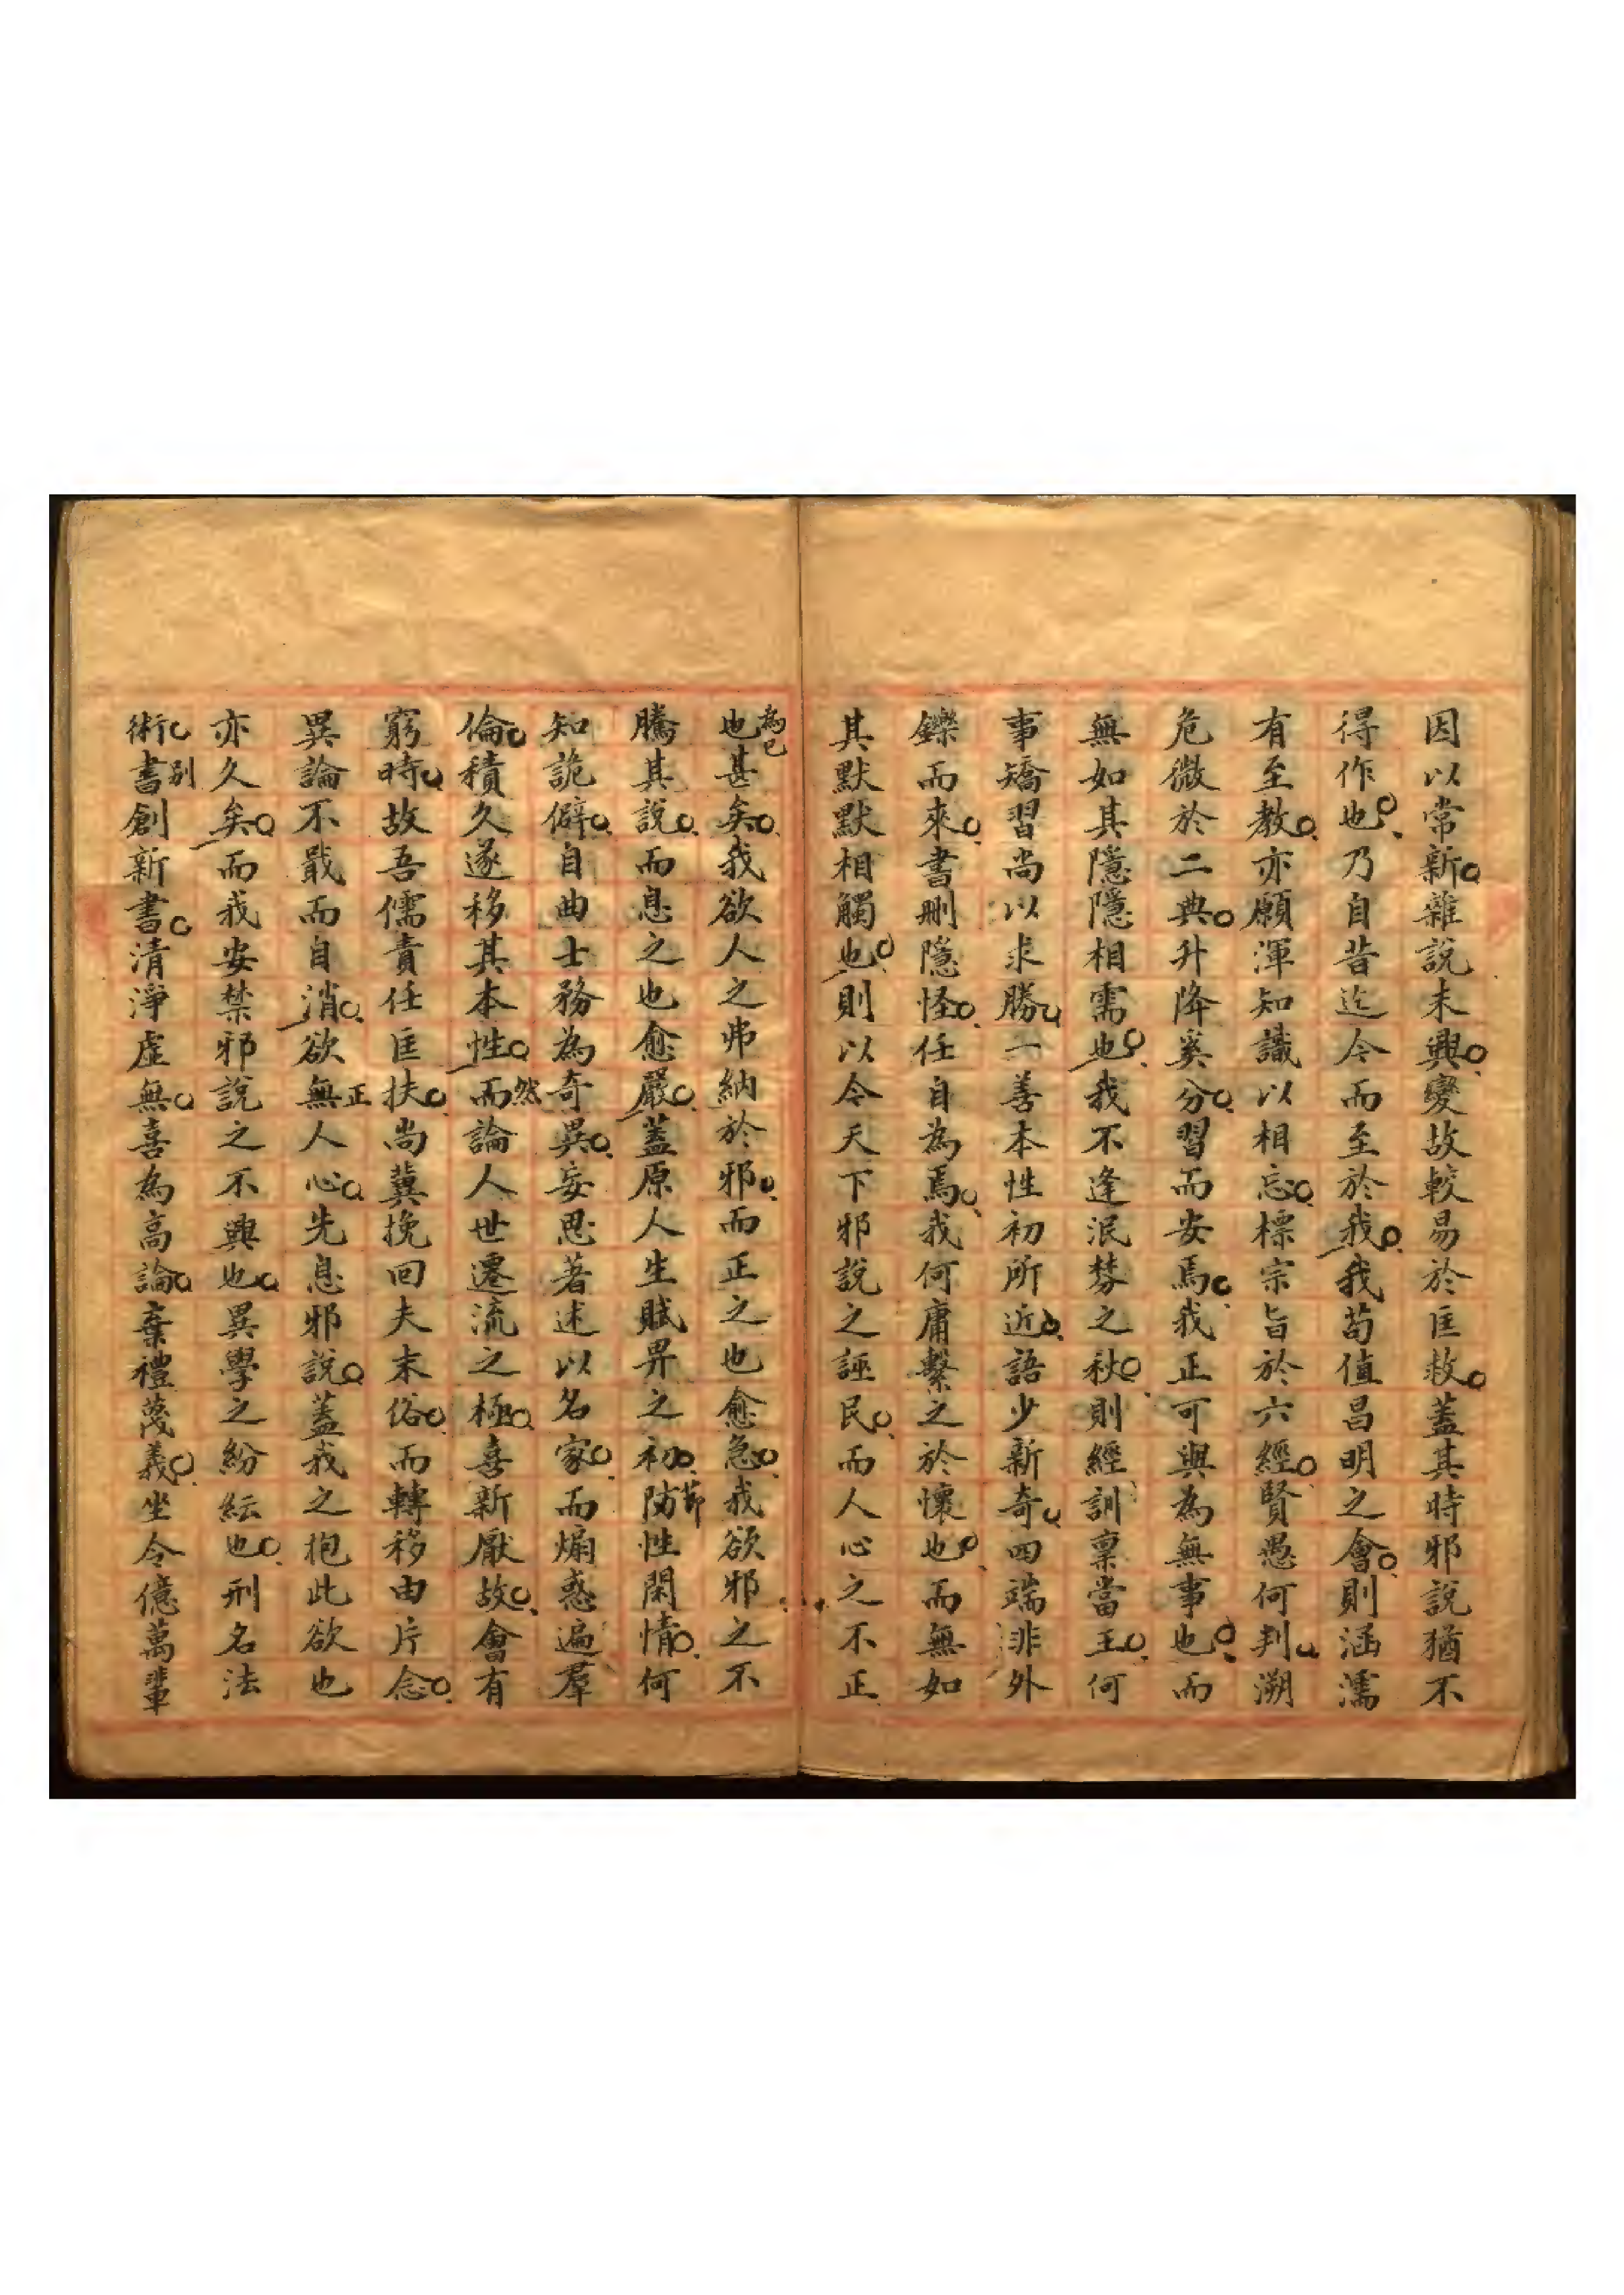 因以常新雜說未興變故較易於匡救蓋其時邪說猶不
得作也乃自昔迄今而至於我我苟值昌明之會則涵濡
有至教亦願渾知識以相忘標宗旨於六經賢愚何判溯
危微於二典升降奚分習而安焉我正可與為無事也而
無如其隱隱相需也我不逢泯棼之秋則經訓稟當王何
事矯習尚以求勝一善本性初所近語少新奇四端非外
鑠而來書刪隱怪任自為焉我何庸繫之於懷也而無如
其默默相觸也則以今天下邪說之誣民而人心之不正
也甚矣我欲人之弗納於邪而正之也愈急我欲邪之不
為已
騰其說而息之也愈嚴蓋原人生賦畀之初防性閑情何
節
知詭僻自曲士務為奇異妄思著述以名家而煽惑遍羣
倫積久遂移其本性而論人世遷流之極喜新厭故會有
然
窮時故吾儒責任匡扶尚冀挽回夫末俗而轉移由片念
異論不戢而自消欲無人心先息邪說蓋我之抱此欲也
正
亦久矣而我安禁邪說之不興也異學之紛紜也刑名法
術書創新書清淨虛無喜為高論棄禮蔑義坐令億萬輩
別